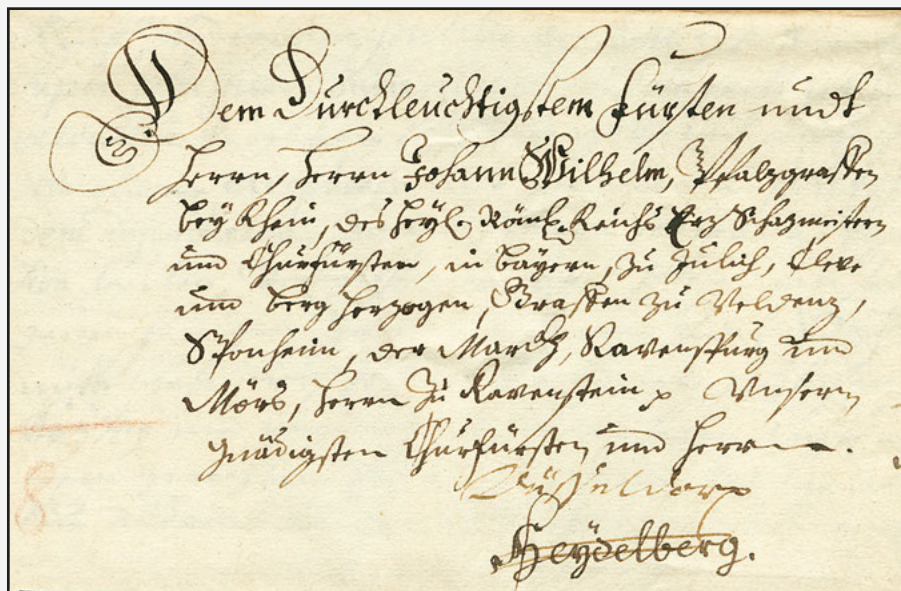 Dem Durchleuchtigstem Fürsten undt
Herrn, Herrn Johann Wilhelm, Pfalzgraffen
bey Rhein, des heyl. Röml. Reichs Erz Schazmeistern
und Churfürsten, in bayern, zu Jülich, Cleve
und berg herzogen, Graffen zu Veldenz,
Sponheim, der Marckh, Ravenspurg und
Mörs, herrn zu Ravenstein Unserm
gnädigsten Churfürsten und herrn.
Düsseldorp
Heydelberg.
8